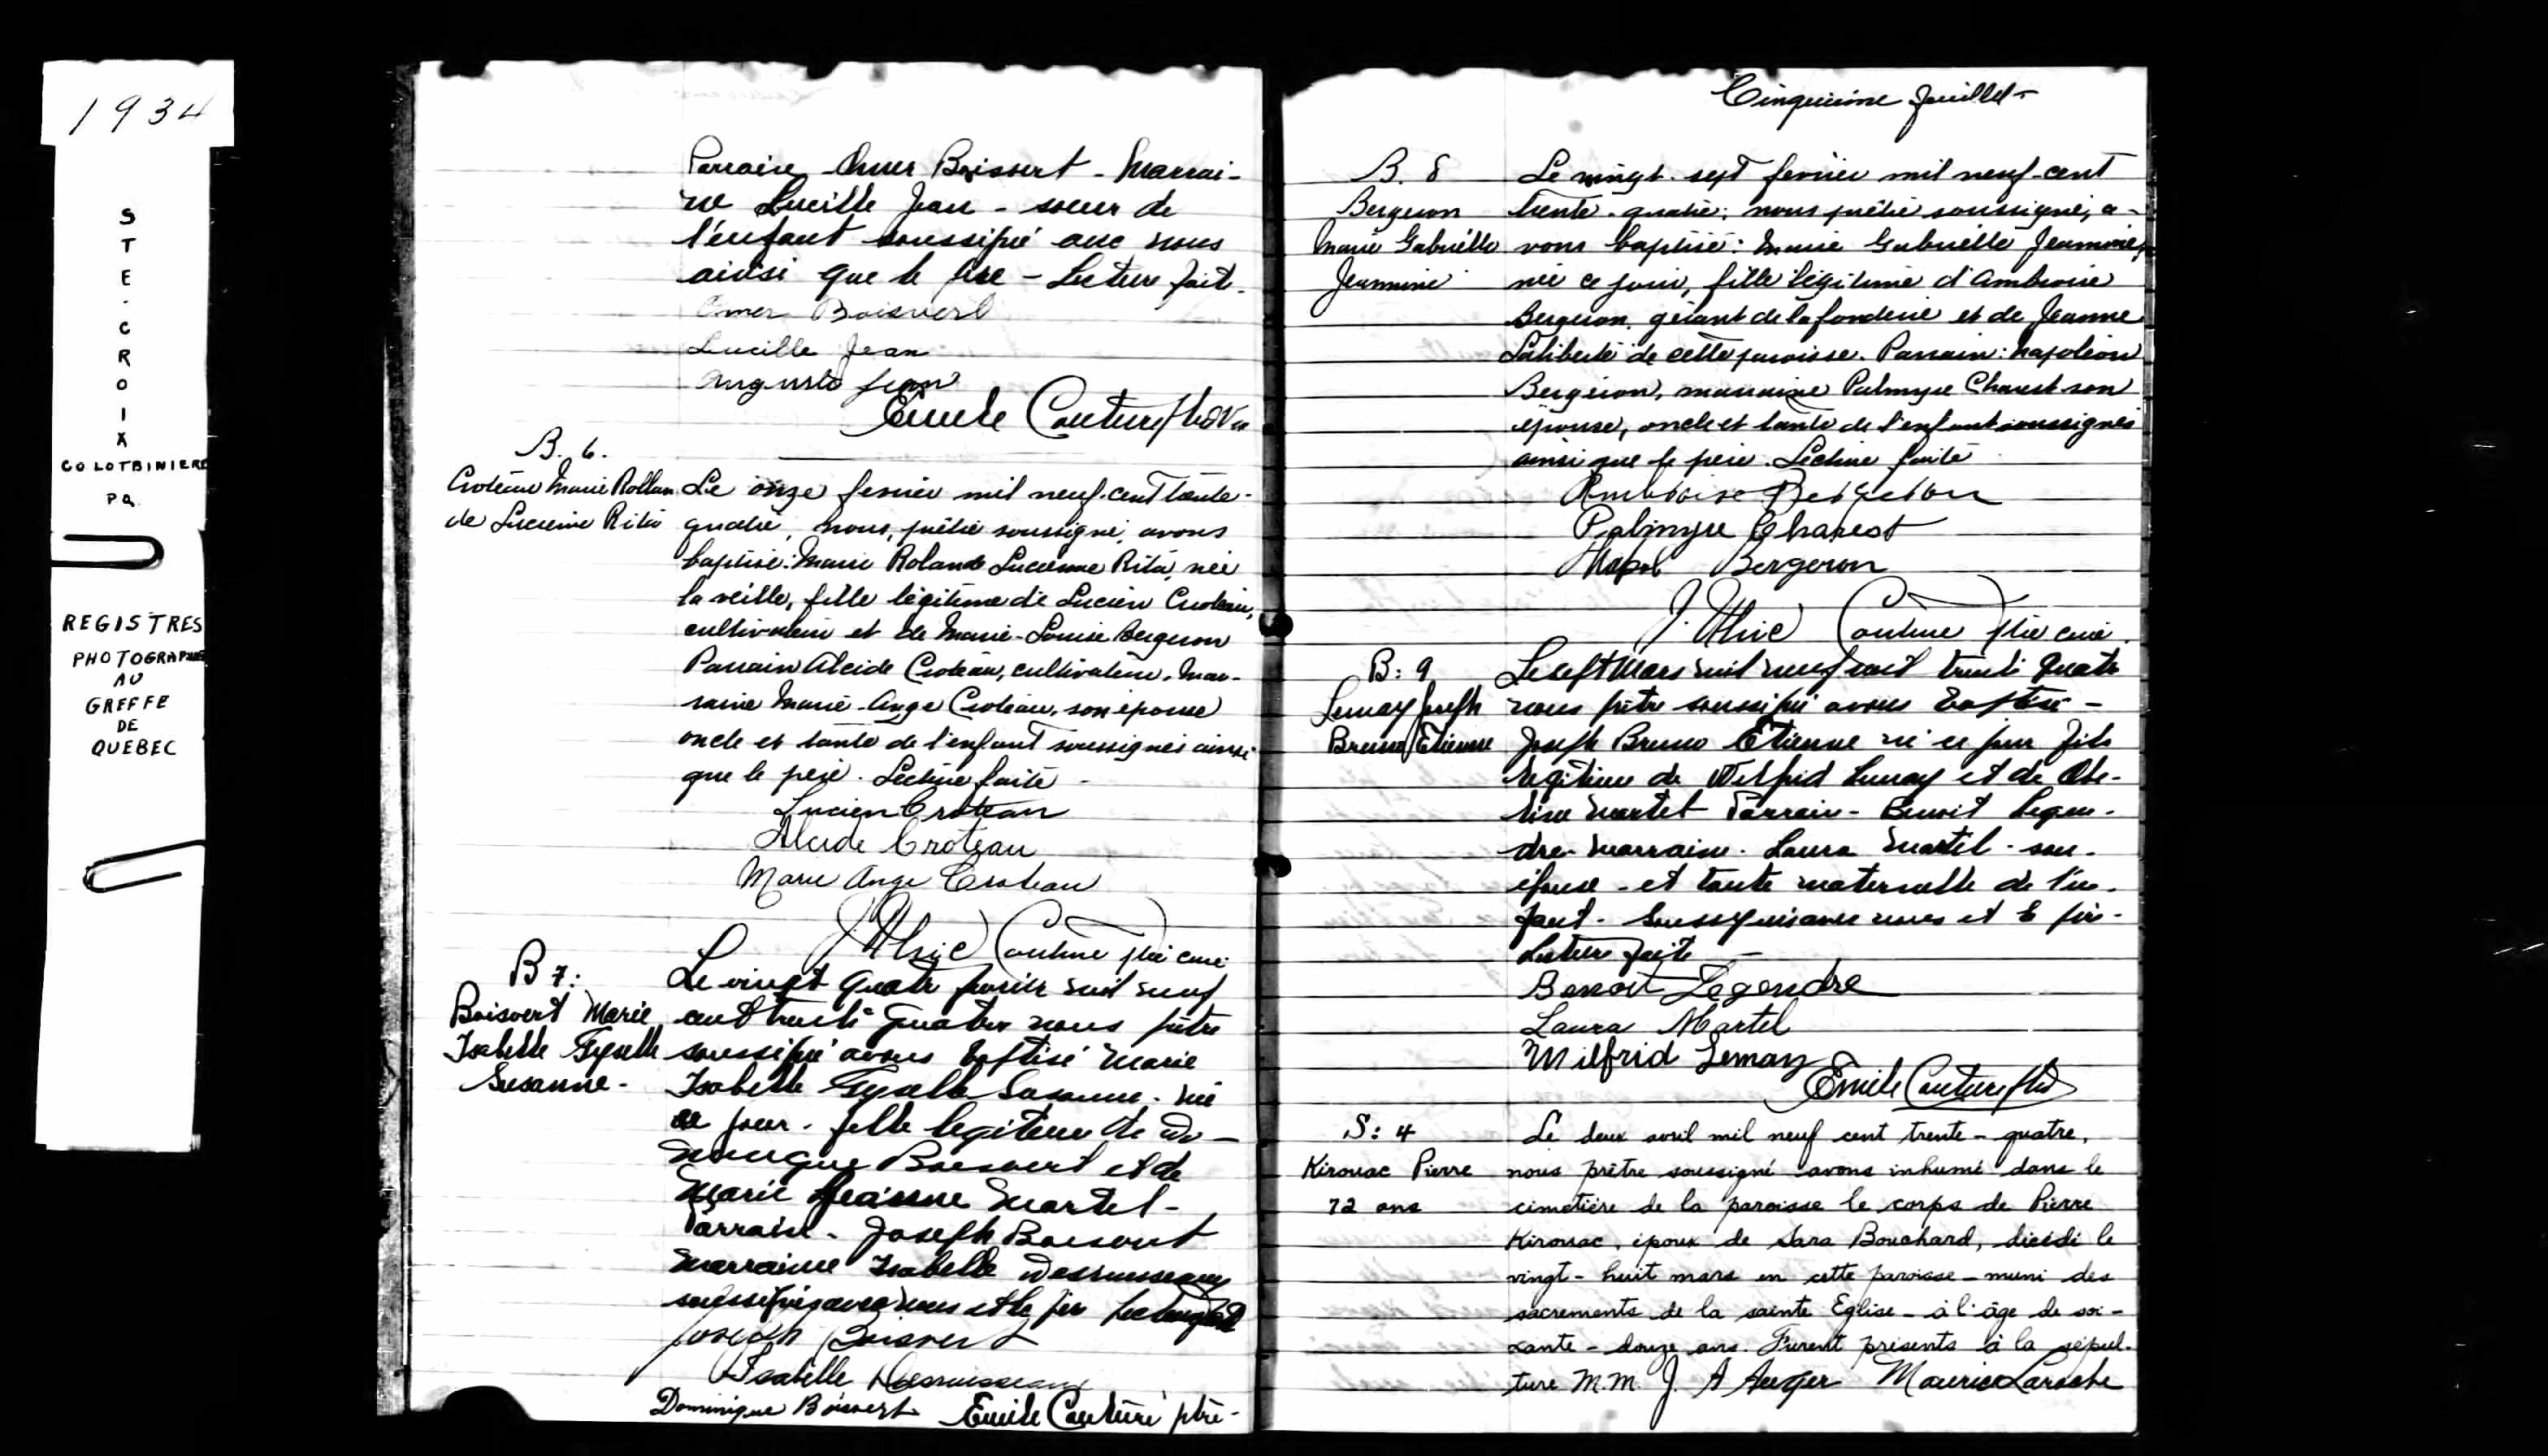 1934
STE-CROIX
CO LOTBINIERE
PQ
REGISTRES
PHOTOGRAPHIES
AU
GREFFE
DE
QUEBEC
Parrain Omer Boisvert - Marrai-
ne Lucille Jean - soeur de
l'enfant soussigné avec nous
ainsi que le père - Lecture faite.
Omer Boisvert
Lucille Jean
Auguste Jean
Emile Couture ptre
B. 6.
Croteau Marie Rollan
de Lucienne Rita
Le onze fevrier mil neuf-cent trente-
quatre, nous, prêtre soussigné, avons
baptisé: Marie Rolande Lucienne Rita, née
la veille, fille légitime de Lucien Croteau,
cultivateur et de Marie-Louise Bergeron
Parrain Alcide Croteau, cultivateur. Mar-
raine Marie-Ange Croteau, son épouse
oncle et tante de l'enfant soussignés ainsi
que le père. Lecture faite -
Lucien Croteau
Alcide Croteau
Marie Ange Croteau
J. Ulric Couture ptre curé
B 7:
Boisvert Marie
Isabelle Gyselle
Susanne -
Le vingt quatre fevrier mil neuf
cent trente quatre nous prêtre
soussigné avons baptisé Marie
Isabelle Gyselle Susanne - née
ce jour - fille legitime de Do-
minique Boisvert et de
Marie Jeanne Martel -
Parrain - Joseph Boisvert
Marraine Isabelle Desruisseaux
soussignés avec nous et le père
Joseph Boisvert
Isabelle Desruisseaux
Dominique Boisvert Emile Couture ptre -
Cinquième feuillet -
B. 8
Bergeron
Marie Gabrielle
Jeannine
Le vingt-sept fevrier mil neuf-cent
trente-quatre; nous prêtre soussigné, a-
vons baptisé: Marie Gabrielle Jeannine,
née ce jour, fille légitime d'Ambroise
Bergeron, gérant de la fonderie et de Jeanne
Laliberté de cette paroisse. Parrain: Napoléon
Bergeron, marraine Palmyre Charest son
épouse, oncle et tante de l'enfant soussignés
ainsi que le père. Lecture faite
Ambroise Bergeron
Palmyre Charest
Napol Bergeron
J. Ulric Couture ptre curé.
B: 9
Lemay Joseph
Bruno Etienne
Le sept Mars mil neuf cent trente quatre
nous prêtre soussigné avons baptisé -
Joseph Bruno Etienne né ce jour fils
legitime de Wilfrid Lemay et de
Martel Parrain - Benoit Legen-
dre - Marraine - Laura Martel - son
épouse - et tante maternelle de l'en-
fant - nous et le père -
Lecture faite -
Benoit Legendre
Laura Martel
Wilfrid Lemay
Emile Couture ptre
S: 4
Kirouac Pierre
72 ans
Le deux avril mil neuf cent trente - quatre,
nous prêtre soussigné avons inhumé dans le
cimetière de la paroisse le corps de Pierre
Kirouac, époux de Sara Bouchard, décédé le
vingt - huit mars en cette paroisse - muni des
sacrements de la sainte Eglise - à l'âge de soi-
xante - douze ans. Furent présents à la sépul-
ture M.M. J. A Auger Maurice Laroche